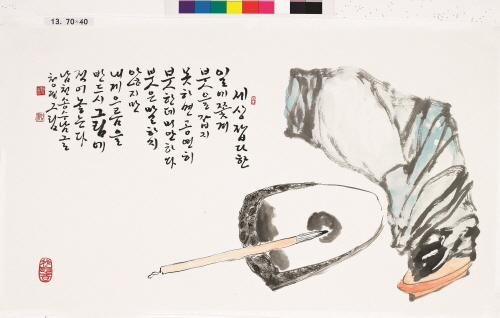 13. 70·40
세상 잡다한
일에 쫓겨
붓을 잡지
못하면 공연히
붓한테 미안하다
붓은 말하지
않지만
내 게으름을
반드시 그림에
적어 놓는다
남천 송수남 글
그림